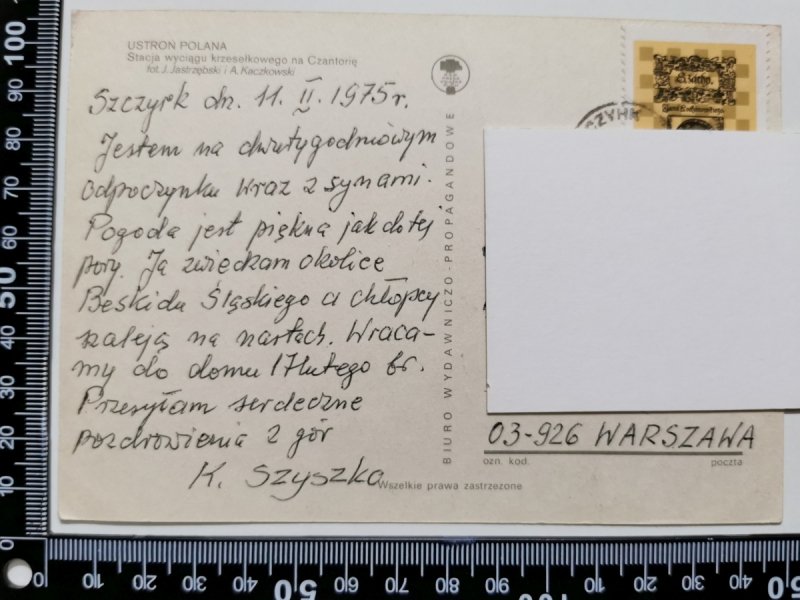 USTROŃ POLANA
Stacja wyciągu krzesełkowego na Czantorię
fot. J. Jastrzębski i A. Kaczkowski
Szczyrk dn. 11. II. 1975 r.
Jestem na dwutygodniowym
odpoczynku wraz z synami.
Pogoda jest piękna jak dotej
pory. Ja zwiedzam okolice
Beskidu Śląskiego a chłopcy
szaleją na nartach. Wraca-
my do domu 17 lutego br.
Przesyłam serdeczne
pozdrowienia z gór
K. Szyszko
BIURO WYDAWNICZO-PROPAGANDOWE
03-926 WARSZAWA
ozn. kod. poczta
Wszelkie prawa zastrzeżone
100
90
80
70
60
50
40
30
20
10
0
0 10 20 30 40 50 60 70 80 90 100 10 20 30 40 50